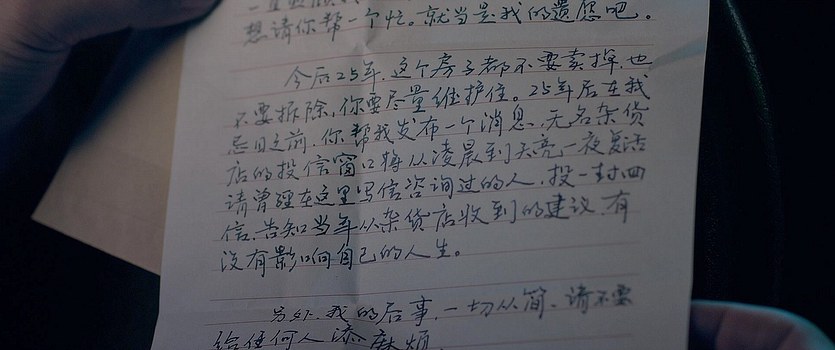 想请你帮一个忙。就当是我的遗愿吧。
今后25年，这个房子都不要卖掉，也
不要拆除，你要尽量维护住。25年后在我
忌日之前，你帮我发布一个消息，无名杂货
店的投信窗口将从凌晨到天亮一夜复活
请曾经在这里写信咨询过的人，投一封回
信、告知当年从杂货店收到的建议，有
没有影响自己的人生。
另外，我的后事，一切从简、请不要
给任何人添麻烦